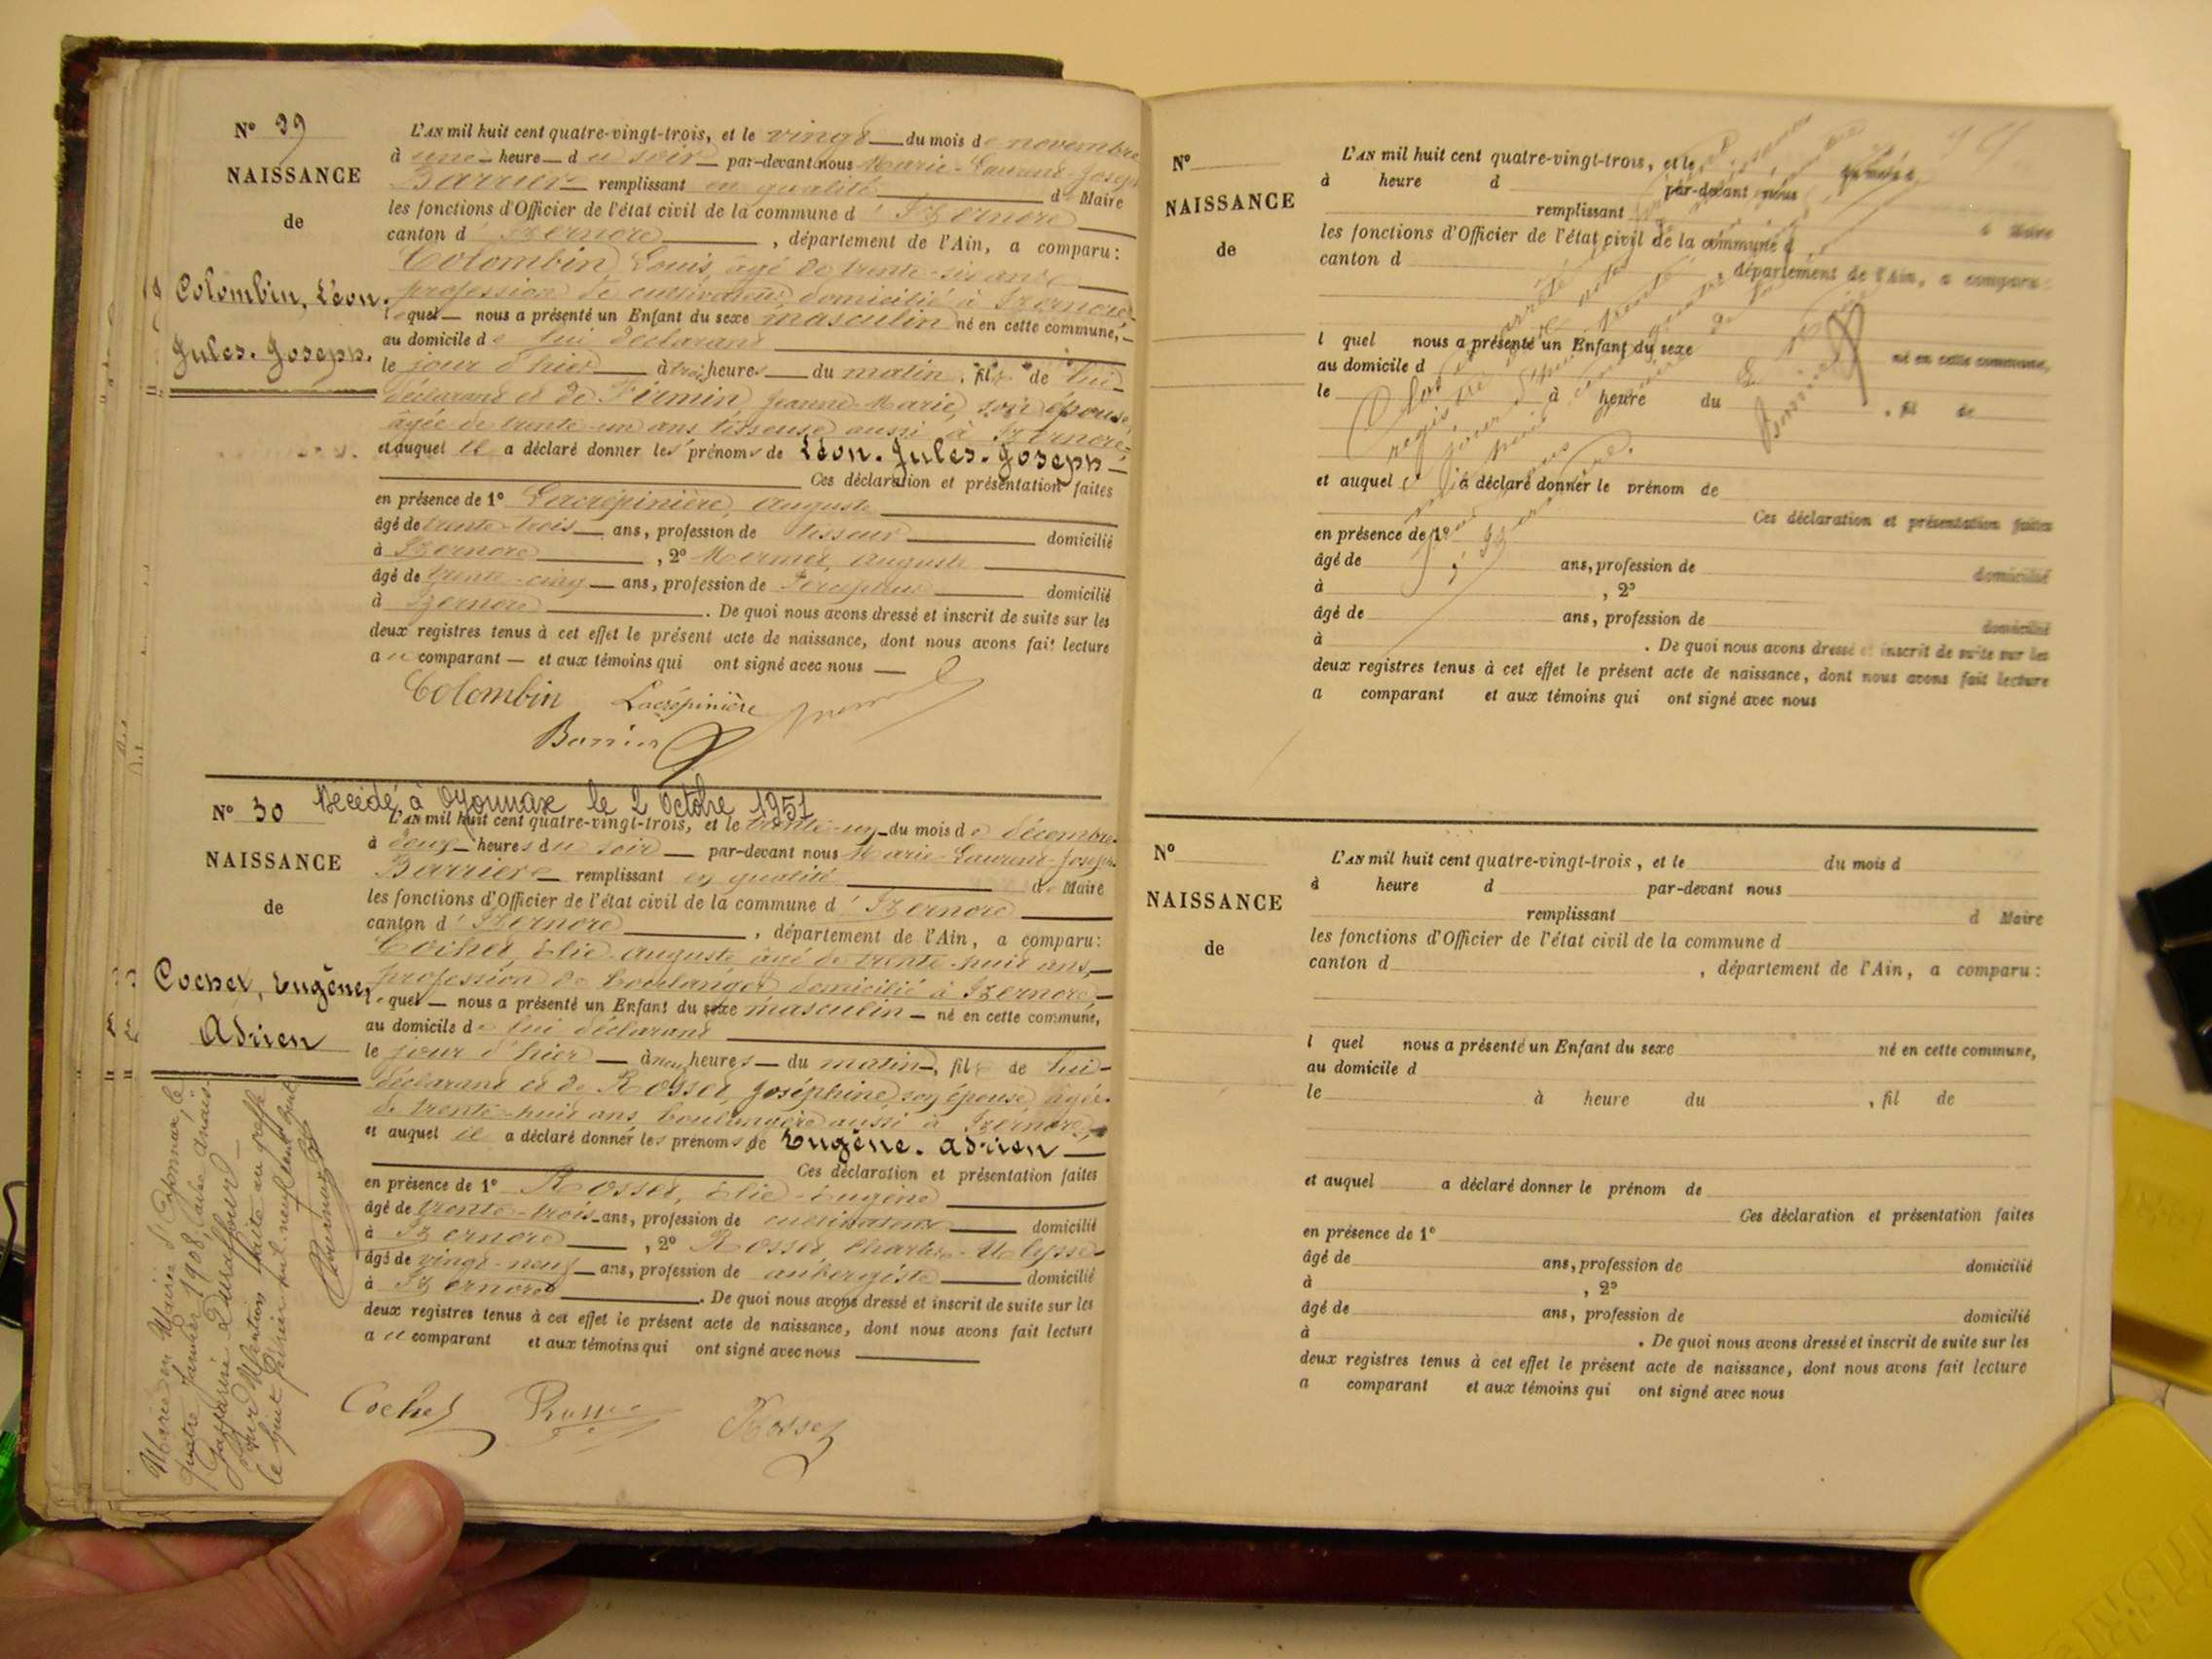 N° 29
NAISSANCE
de
Colombin, Léon.
Jules. Joseph.
L'AN mil huit cent quatre-vingt-trois, et le vingt du mois de novembre
à une heure du soir par-devant nous Marie-Laurent-Joseph
Barrier remplissant en qualité de Maire
les fonctions d'Officier de l'état civil de la commune d'Izernore
canton d'Izernore, département de l'Ain, a comparu:
Colombin, Louis, âgé de trente-six ans
profession de cultivateur, domicilié à Izernore
lequel nous a présenté un Enfant du sexe masculin né en cette commune,
au domicile de lui déclarant
le jour d'hier à trois heures du matin, fils de lui
déclarant et de Firmin Jeanne-Marie, son épouse,
âgée de trente-un ans tisseuse aussi à Izernore
et auquel il a déclaré donner les prénoms de Léon. Jules. Joseph
Ces déclaration et présentation faites
en présence de 1° Lacrépinière, Auguste
âgé de trente-trois ans, profession de tisseur domicilié
à Izernore, 2° Mermet, Auguste
âgé de trente-cinq ans, profession de Percepteur domicilié
à Izernore. De quoi nous avons dressé et inscrit de suite sur les
deux registres tenus à cet effet le présent acte de naissance, dont nous avons fait lecture
au comparant et aux témoins qui ont signé avec nous
Colombin Lacrépinière
N° 30
Décédé à Oyonnax le 2 Octobre 1951
NAISSANCE
de
Cochet, Eugène,
Adrien
L'AN mil huit cent quatre-vingt-trois, et le trente-un du mois de décembre
à deux heures du soir par-devant nous Marie-Laurent-Joseph
Barrier remplissant en qualité de Maire
les fonctions d'Officier de l'état civil de la commune d'Izernore
canton d'Izernore, département de l'Ain, a comparu:
Cochet, Elie-Auguste âgé de trente-huit ans,
profession de boulanger domicilié à Izernore
lequel nous a présenté un Enfant du sexe masculin né en cette commune,
au domicile de lui déclarant
le jour d'hier à neuf heures du matin, fils de lui
déclarant et de Rosset, Joséphine son épouse, âgée
de trente-huit ans boulangère aussi à Izernore,
et auquel il a déclaré donner les prénoms de Eugène. Adrien
Ces déclaration et présentation faites
en présence de 1° Rosset, Elie-Eugène
âgé de trente-trois ans, profession de cultivateur domicilié
à Izernore, 2° Rosset, Charles-Ulysse
âgé de vingt-neuf ans, profession de aubergiste domicilié
à Izernore. De quoi nous avons dressé et inscrit de suite sur les
deux registres tenus à cet effet le présent acte de naissance, dont nous avons fait lecture
au comparant et aux témoins qui ont signé avec nous
Cochet Rosset Rosset
Marié en Mairie d'Oyonnax le
quatre Janvier 1908
Mention faite au greffe
N°
NAISSANCE
de
L'AN mil huit cent quatre-vingt-trois, et le
à heure d par-devant nous
remplissant d Maire
les fonctions d'Officier de l'état civil de la commune d
canton d , département de l'Ain, a comparu:
l quel nous a présenté un Enfant du sexe né en cette commune,
au domicile d
le à heure du , fil de
et auquel a déclaré donner le prénom de
Ces déclaration et présentation faites
en présence de 1°
âgé de ans, profession de domicilié
à , 2°
âgé de ans, profession de domicilié
à . De quoi nous avons dressé et inscrit de suite sur les
deux registres tenus à cet effet le présent acte de naissance, dont nous avons fait lecture
a comparant et aux témoins qui ont signé avec nous
N°
NAISSANCE
de
L'AN mil huit cent quatre-vingt-trois, et le du mois d
à heure d par-devant nous
remplissant d Maire
les fonctions d'Officier de l'état civil de la commune d
canton d , département de l'Ain, a comparu:
l quel nous a présenté un Enfant du sexe né en cette commune,
au domicile d
le à heure du , fil de
et auquel a déclaré donner le prénom de
Ces déclaration et présentation faites
en présence de 1°
âgé de ans, profession de domicilié
à , 2°
âgé de ans, profession de domicilié
à . De quoi nous avons dressé et inscrit de suite sur les
deux registres tenus à cet effet le présent acte de naissance, dont nous avons fait lecture
a comparant et aux témoins qui ont signé avec nous